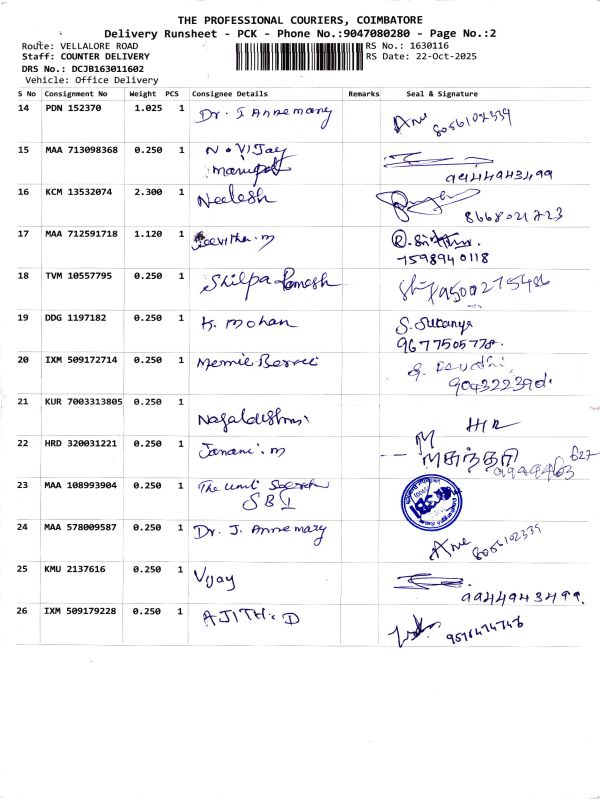 THE PROFESSIONAL COURIERS, COIMBATORE
Delivery Runsheet - PCK - Phone No.:9047080280 - Page No.:2
Route: VELLALORE ROAD RS No.: 1630116
Staff: COUNTER DELIVERY RS Date: 22-Oct-2025
DRS No.: DCJB163011602
Vehicle: Office Delivery
S No Consignment No Weight PCS Consignee Details Remarks Seal & Signature
14 PDN 152370 1.025 1 Dr. J Annemary
8056102339
15 MAA 713098368 0.250 1 N. Vijay
9444943499
16 KCM 13532074 2.300 1 Neelesh
8668021723
17 MAA 712591718 1.120 1
7598940118
18 TVM 10557795 0.250 1 Shilpa Ramesh
9500275486
19 DDG 1197182 0.250 1 K. Mohan S. Sukanya
9677505778.
20 IXM 509172714 0.250 1
21 KUR 7003313805 0.250 1
22 HRD 320031221 0.250 1 Janani. M
23 MAA 108993904 0.250 1 The Unit
SBI
24 MAA 578009587 0.250 1 Dr. J. Annemary
8056102339
25 KMU 2137616 0.250 1 Vijay
9444943499.
26 IXM 509179228 0.250 1 AJITH. D